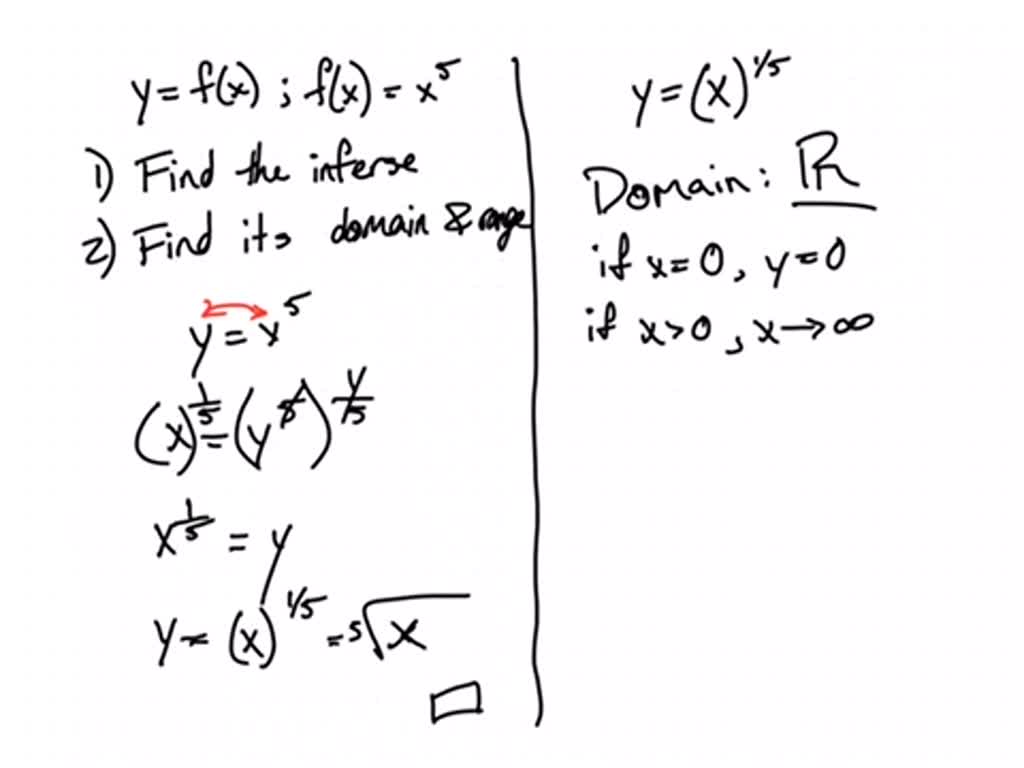 y = f(x) ; f(x) = x^5
1) Find the inferse
2) Find its domain & range
y = x^5
(x)^1/5 = (y^5)^1/5
x^1/5 = y
y = (x)^1/5 = ⁵√x
y = (x)^1/5
Domain: ℝ
if x = 0, y = 0
if x > 0, x → ∞